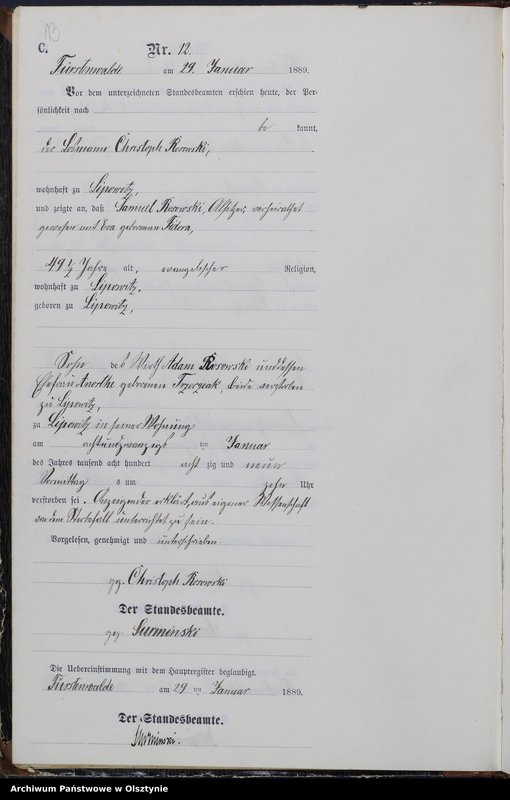 13
C.
Nr. 12.
Fürstenwalde am 29. Januar 1889.
Vor dem unterzeichneten Standesbeamten erschien heute, der Per-
sönlichkeit nach
be kannt,
der Losmann Christoph Rosowski,
wohnhaft zu Lipowitz,
und zeigte an, daß Samuel Rosowski, Altsitzer, verheirathet
gewesen mit Eva geborenen
49 1/2 Jahre alt, evangelischer Religion,
wohnhaft zu Lipowitz,
geboren zu Lipowitz,
Sohn des Wirth Adam Rosowski und dessen
Ehefrau geborenen beide verstorben
zu Lipowitz,
zu Lipowitz in seiner Wohnung
am achtundzwanzigs ten Januar
des Jahres tausend acht hundert acht zig und neun
Vormittag s um zehn Uhr
verstorben sei. Anzeigender erklärt, aus eigener Wissenschaft
von dem Sterbefall unterrichtet zu sein.
Vorgelesen, genehmigt und unterschrieben
gez. Christoph Rosowski
Der Standesbeamte.
gez. Surminski
Die Uebereinstimmung mit dem Hauptregister beglaubigt.
Fürstenwalde am 29 ten Januar 1889.
Der Standesbeamte.
Surminski.
Archiwum Państwowe w Olsztynie